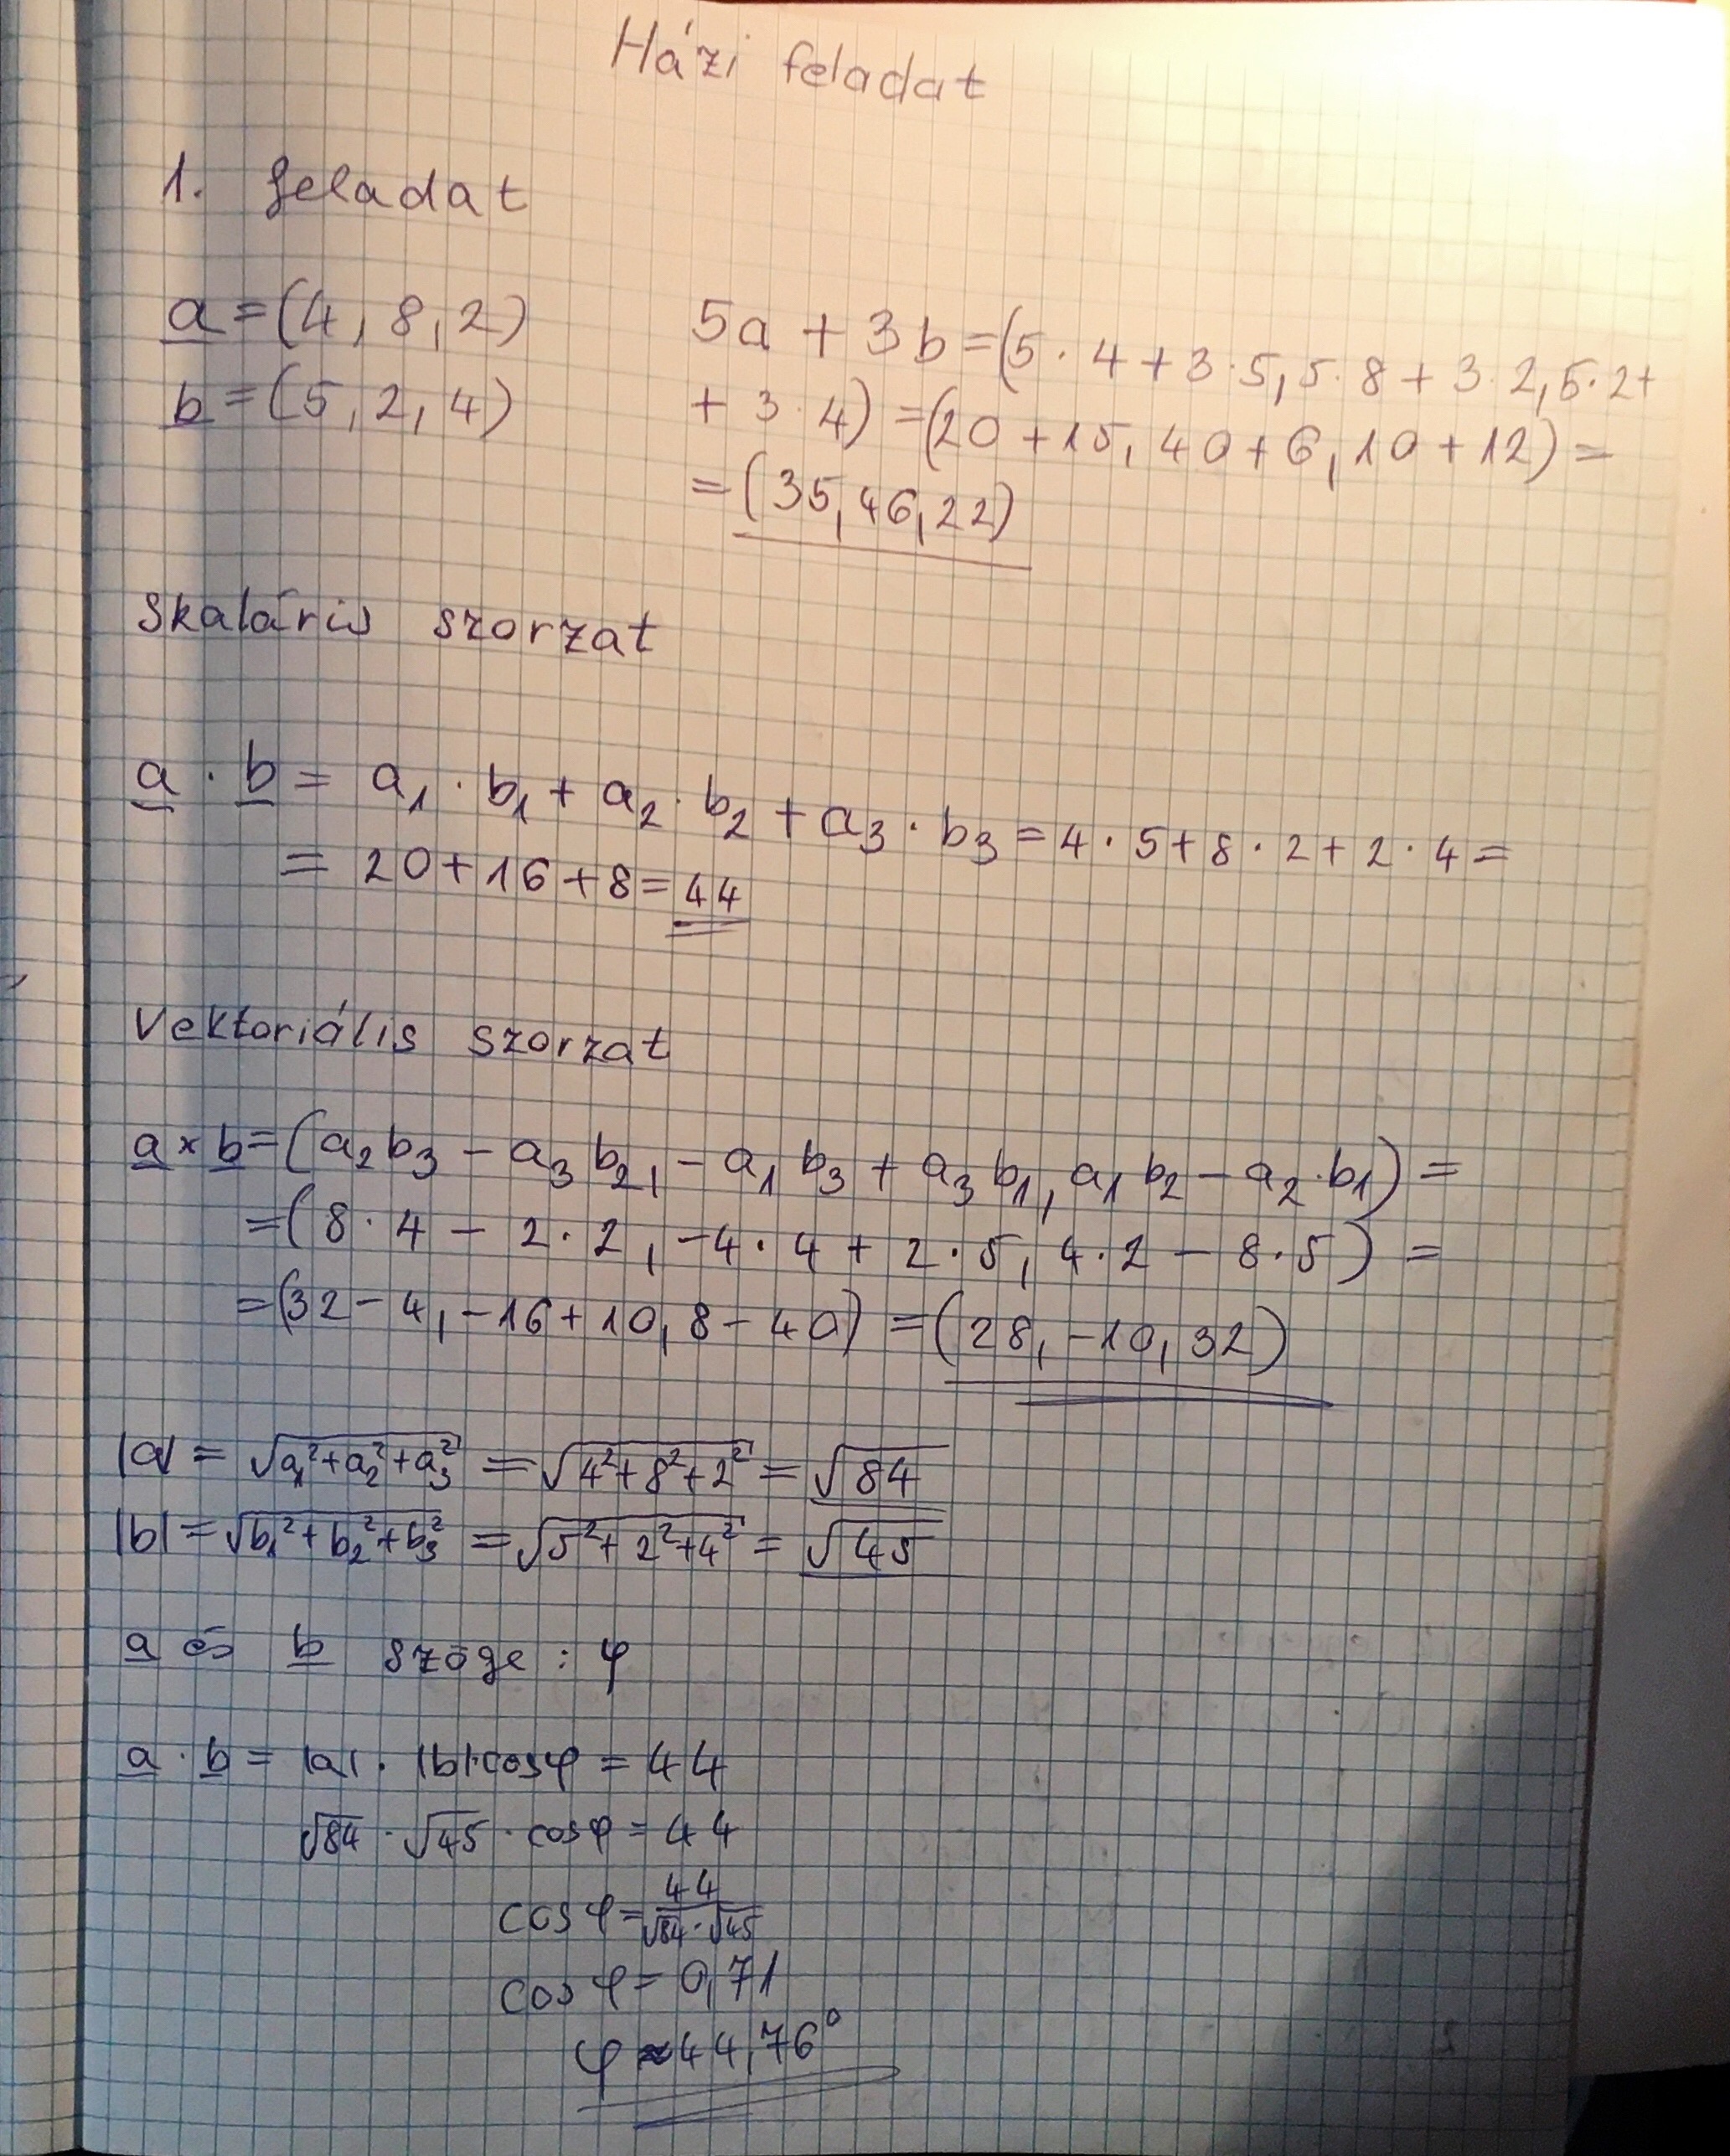 Házi feladat
1. feladat
a = (4, 8, 2)
b = (5, 2, 4)
5a + 3b = (5·4+3·5, 5·8+3·2, 5·2+
+ 3·4) = (20+15, 40+6, 10+12) =
= (35, 46, 22)
Skaláris szorzat
a · b = a₁·b₁ + a₂·b₂ + a₃·b₃ = 4·5+8·2+2·4 =
= 20+16+8 = 44
Vektoriális szorzat
a×b = (a₂b₃ − a₃b₂, −a₁b₃ + a₃b₁, a₁b₂ − a₂·b₁) =
= (8·4 − 2·2, −4·4 + 2·5, 4·2 − 8·5) =
= (32−4, −16+10, 8−40) = (28, −10, 32)
|a| = √a₁²+a₂²+a₃² = √4²+8²+2² = √84
|b| = √b₁²+b₂²+b₃² = √5²+2²+4² = √45
a és b szöge : φ
a · b = |a| · |b|·cosφ = 44
√84 · √45 · cosφ = 44
cosφ = 44/√84·√45
cosφ = 0,71
φ ≈ 44,76°